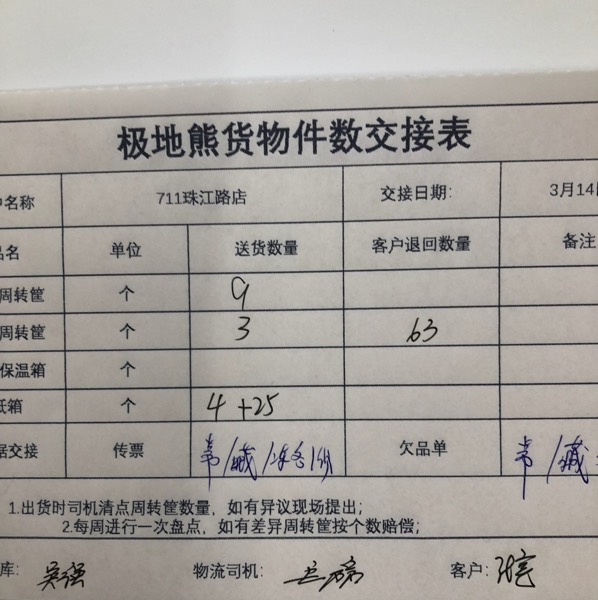 极地熊货物件数交接表
名称 711珠江路店 交接日期: 3月14
品名 单位 送货数量 客户退回数量 备注
周转筐 个 9
周转筐 个 3 63
保温箱 个
纸箱 个 4+25
据交接 传票 欠品单
1.出货时司机清点周转筐数量，如有异议现场提出；
2.每周进行一次盘点，如有差异周转筐按个数赔偿；
库: 吴强 物流司机: 客户: